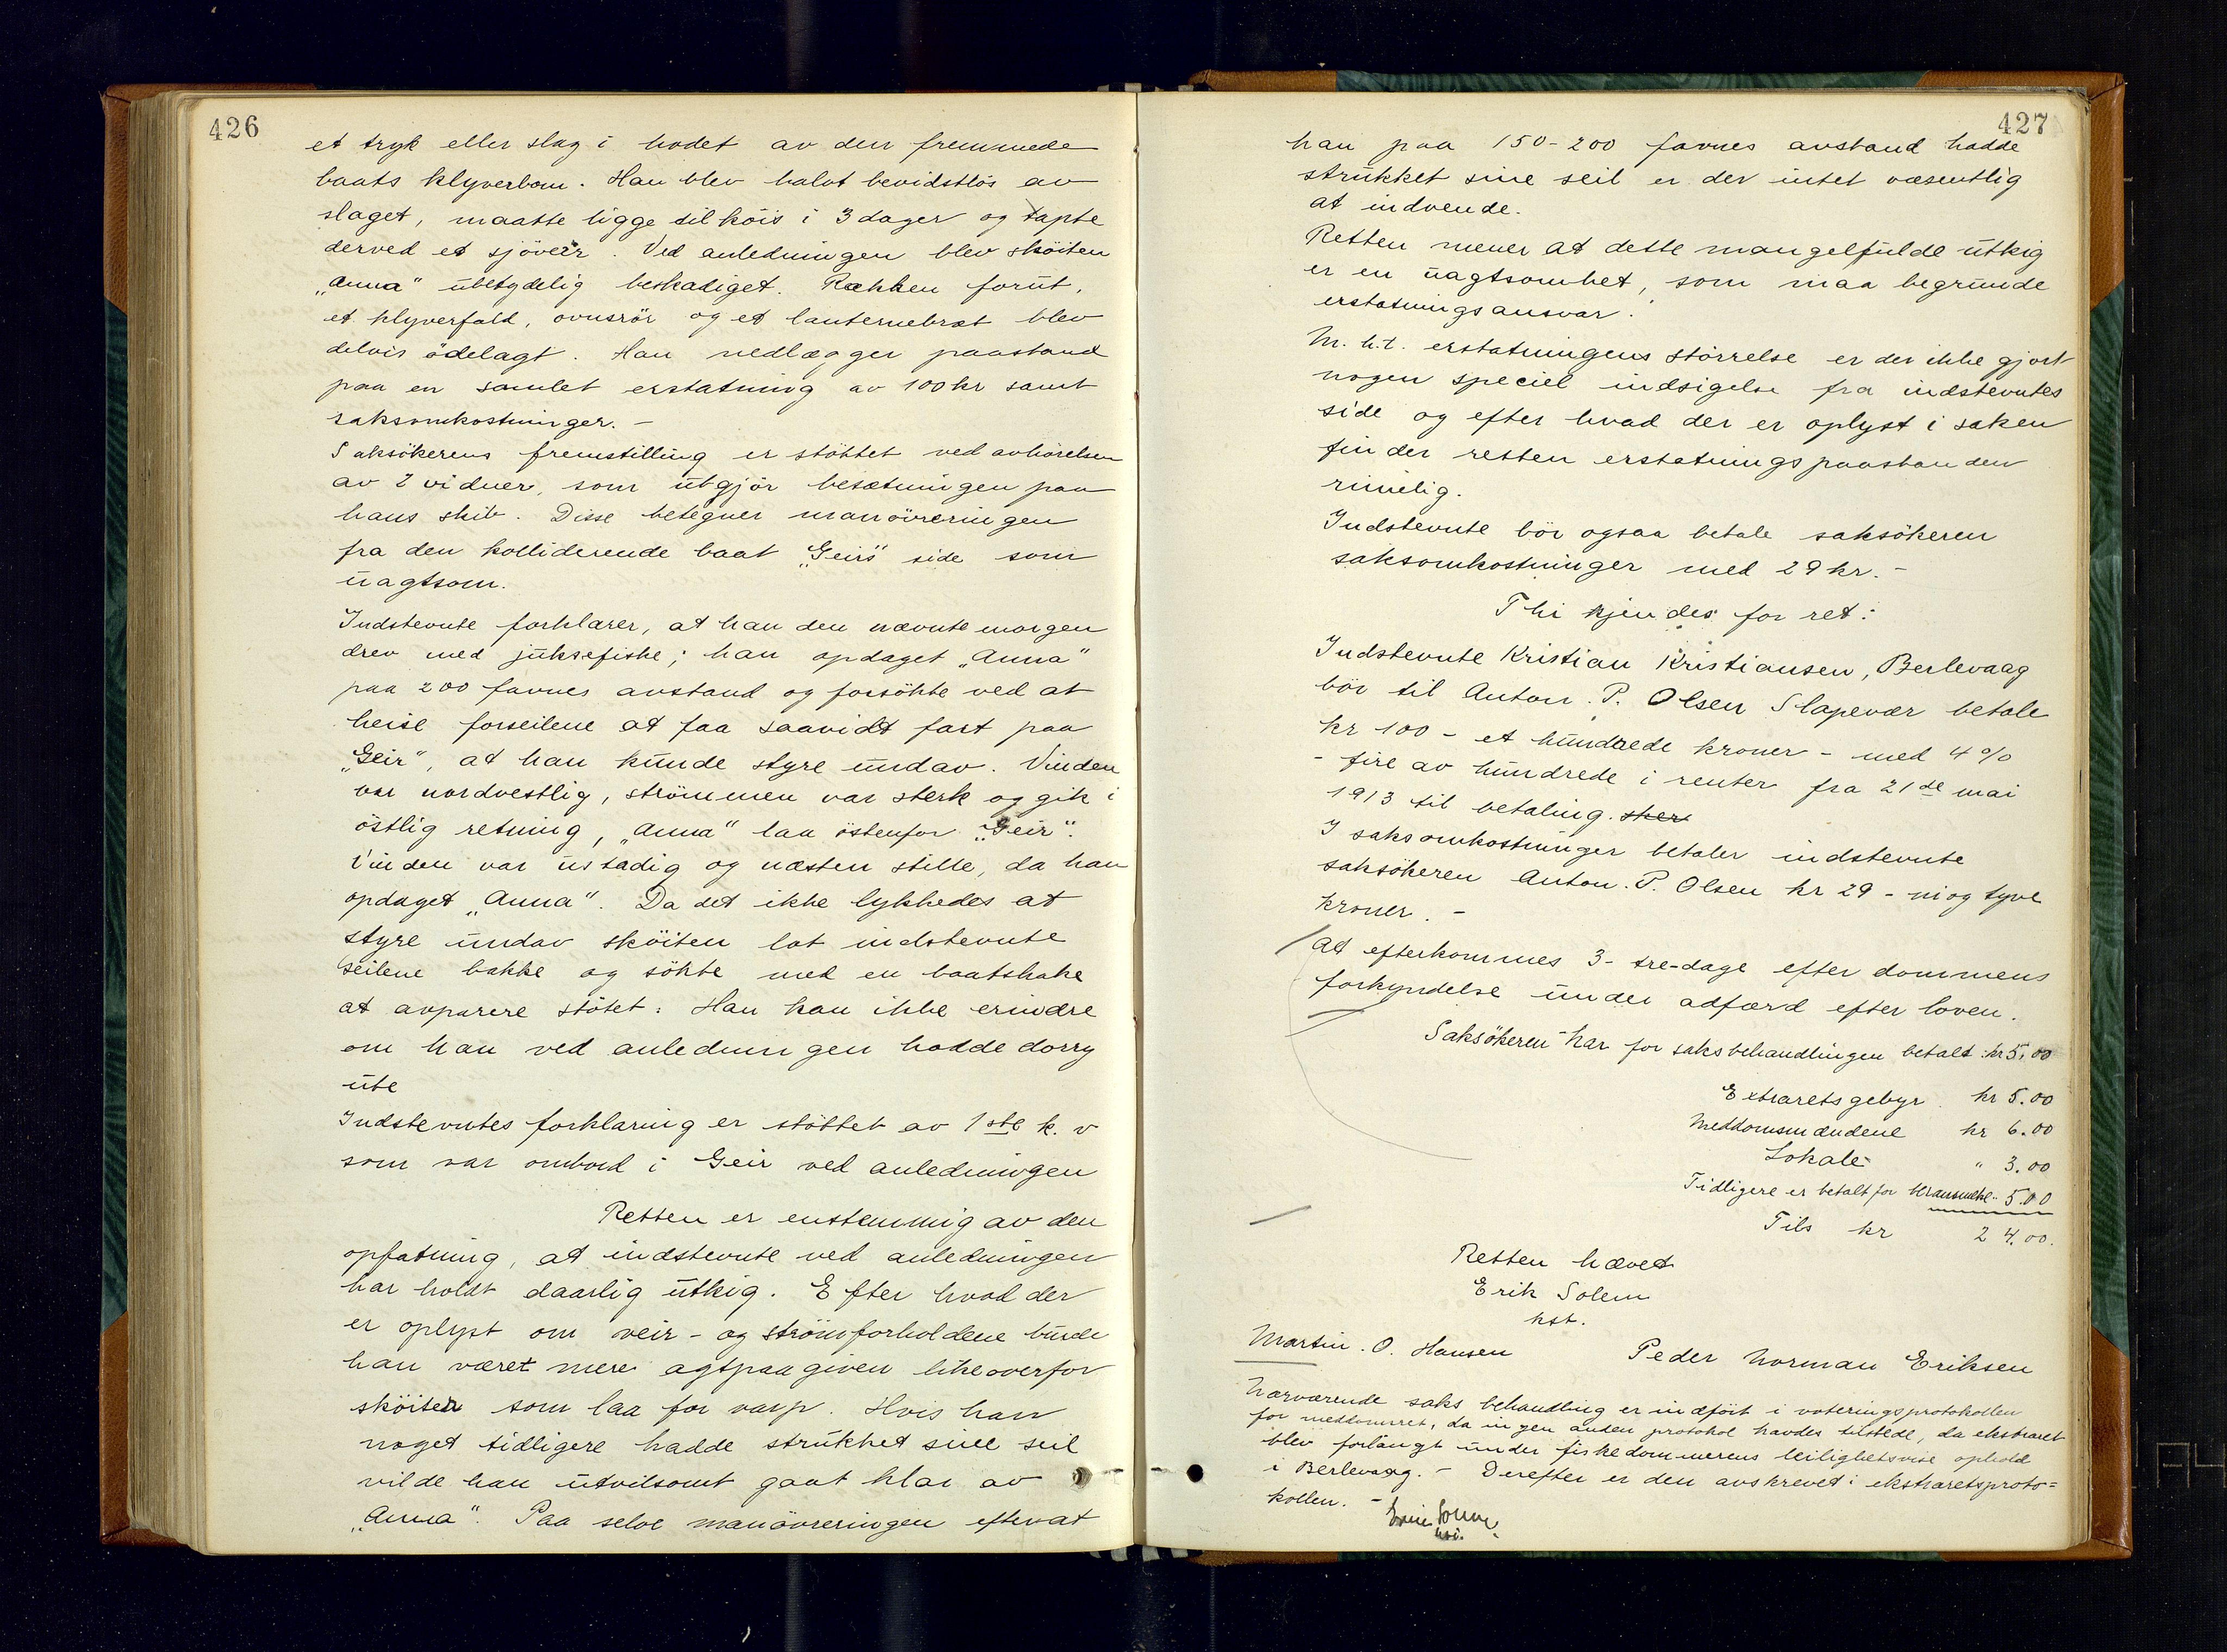 426
et tryk eller slag i hodet av den fremmede
baats klyverbom. Han blev halvt bevidstlös av
slaget, maatte ligge til köis i 3 dager og tapte
derved et sjöveir. Ved anledningen blev sköiten
„Anna" übetydelig beskadiget. Rækken forüt,
et klyverfald, ovnsrör og et lanternebræt blev
delvis ödelagt. Han nedlægger paastand
paa en samlet erstatning av 100 kr samt
saksomkostninger. -
Saksökerens fremstilling er stöttet ved avhörelsen
av 2 vidner, som ütgjör besætningen paa
hans skib. Disse betegner manövreringen
fra den kolliderende baat „Geirs" side som
üagtsom.
Indstevnte forklarer, at han den nævnte morgen
drev med jüksefiske; han opdaget „Anna"
paa 200 favnes avstand og forsökte ved at
heise forseilene at faa saavidt fart paa
„Geir", at han künde styre ündav. Vinden
var nordvestlig, strömmen var sterk og gik i
östlig retning, „Anna" laa östenfor „Geir".
Vinden var üstadig og næsten stille, da han
opdaget „Anna". Da det ikke lykkedes at
styre ündav sköiten lot indstevnte
seilene bakke og sökte med en baatshake
at avparere stötet. Han kan ikke erindre
om han ved anledningen hadde dorry
üte
Indstevntes forklaring er stöttet av 1ste k. v
som var ombord i Geir ved anledningen
Retten er enstemmig av den
opfatning, at indstevnte ved anledningen
har holdt daarlig ütkig. Efter hvad der
er oplyst om veir- og strömforholdene bürde
han været mere agtpaagiven likeoverfor
sköiten som laa for varp. Hvis han
noget tidligere hadde strükket sine seil
vilde han ütvilsomt gaat klar av
„Anna". Paa selve manövreringen efterat
427
han paa 150-200 favnes avstand hadde
strükket sine seil er der intet væsentlig
at indvende.
Retten mener at dette mangelfülde ütkig
er en üagtsomhet, som maa begründe
erstatningsansvar.
M. h. t. erstatningens störrelse er der ikke gjort
nogen speciel indsigelse fra indstevntes
side og efter hvad der er oplyst i saken
finder retten erstatningspaastanden
rimelig.
Indstevnte bör ogsaa betale saksökeren
saksomkostninger med 29 kr. -
Thi kjendes for ret:
Indstevnte Kristian Kristiansen, Berlevaag
bör til Anton. P. Olsen Slapevær betale
kr 100 - et hündrede kroner - med 4 %
- fire av hündrede i renter fra 21de mai
1913 til betaling. sker
I saksomkostninger betaler indstevnte
saksökeren Anton. P. Olsen kr 29 - ni og tyve
kroner. -
At efterkommes 3- tre-dage efter dommens
forkyndelse ünder adfærd efter loven.
Saksökeren har for saksbehandlingen betalt: kr 5.00
Extraretsgebyr kr 5.00
Meddomsmændene kr 6.00
Lokale " 3.00
Tidligere er betalt for 5.00
Tils kr 24.00.
Retten hævet
Erik Solem
kst.
Martin. O. Hansen Peder Norman Eriksen
Nærværende saks behandling er indfört i voteringsprotokollen
for meddomsret, da ingen anden protokol havdes tilstede, da ekstraret
blev forlangt ünder fiskedommerens leilighetsvise ophold
i Berlevaag. - Derefter er den avskrevet i ekstraretsproto=
kollen. -
Erik Solem
kst.